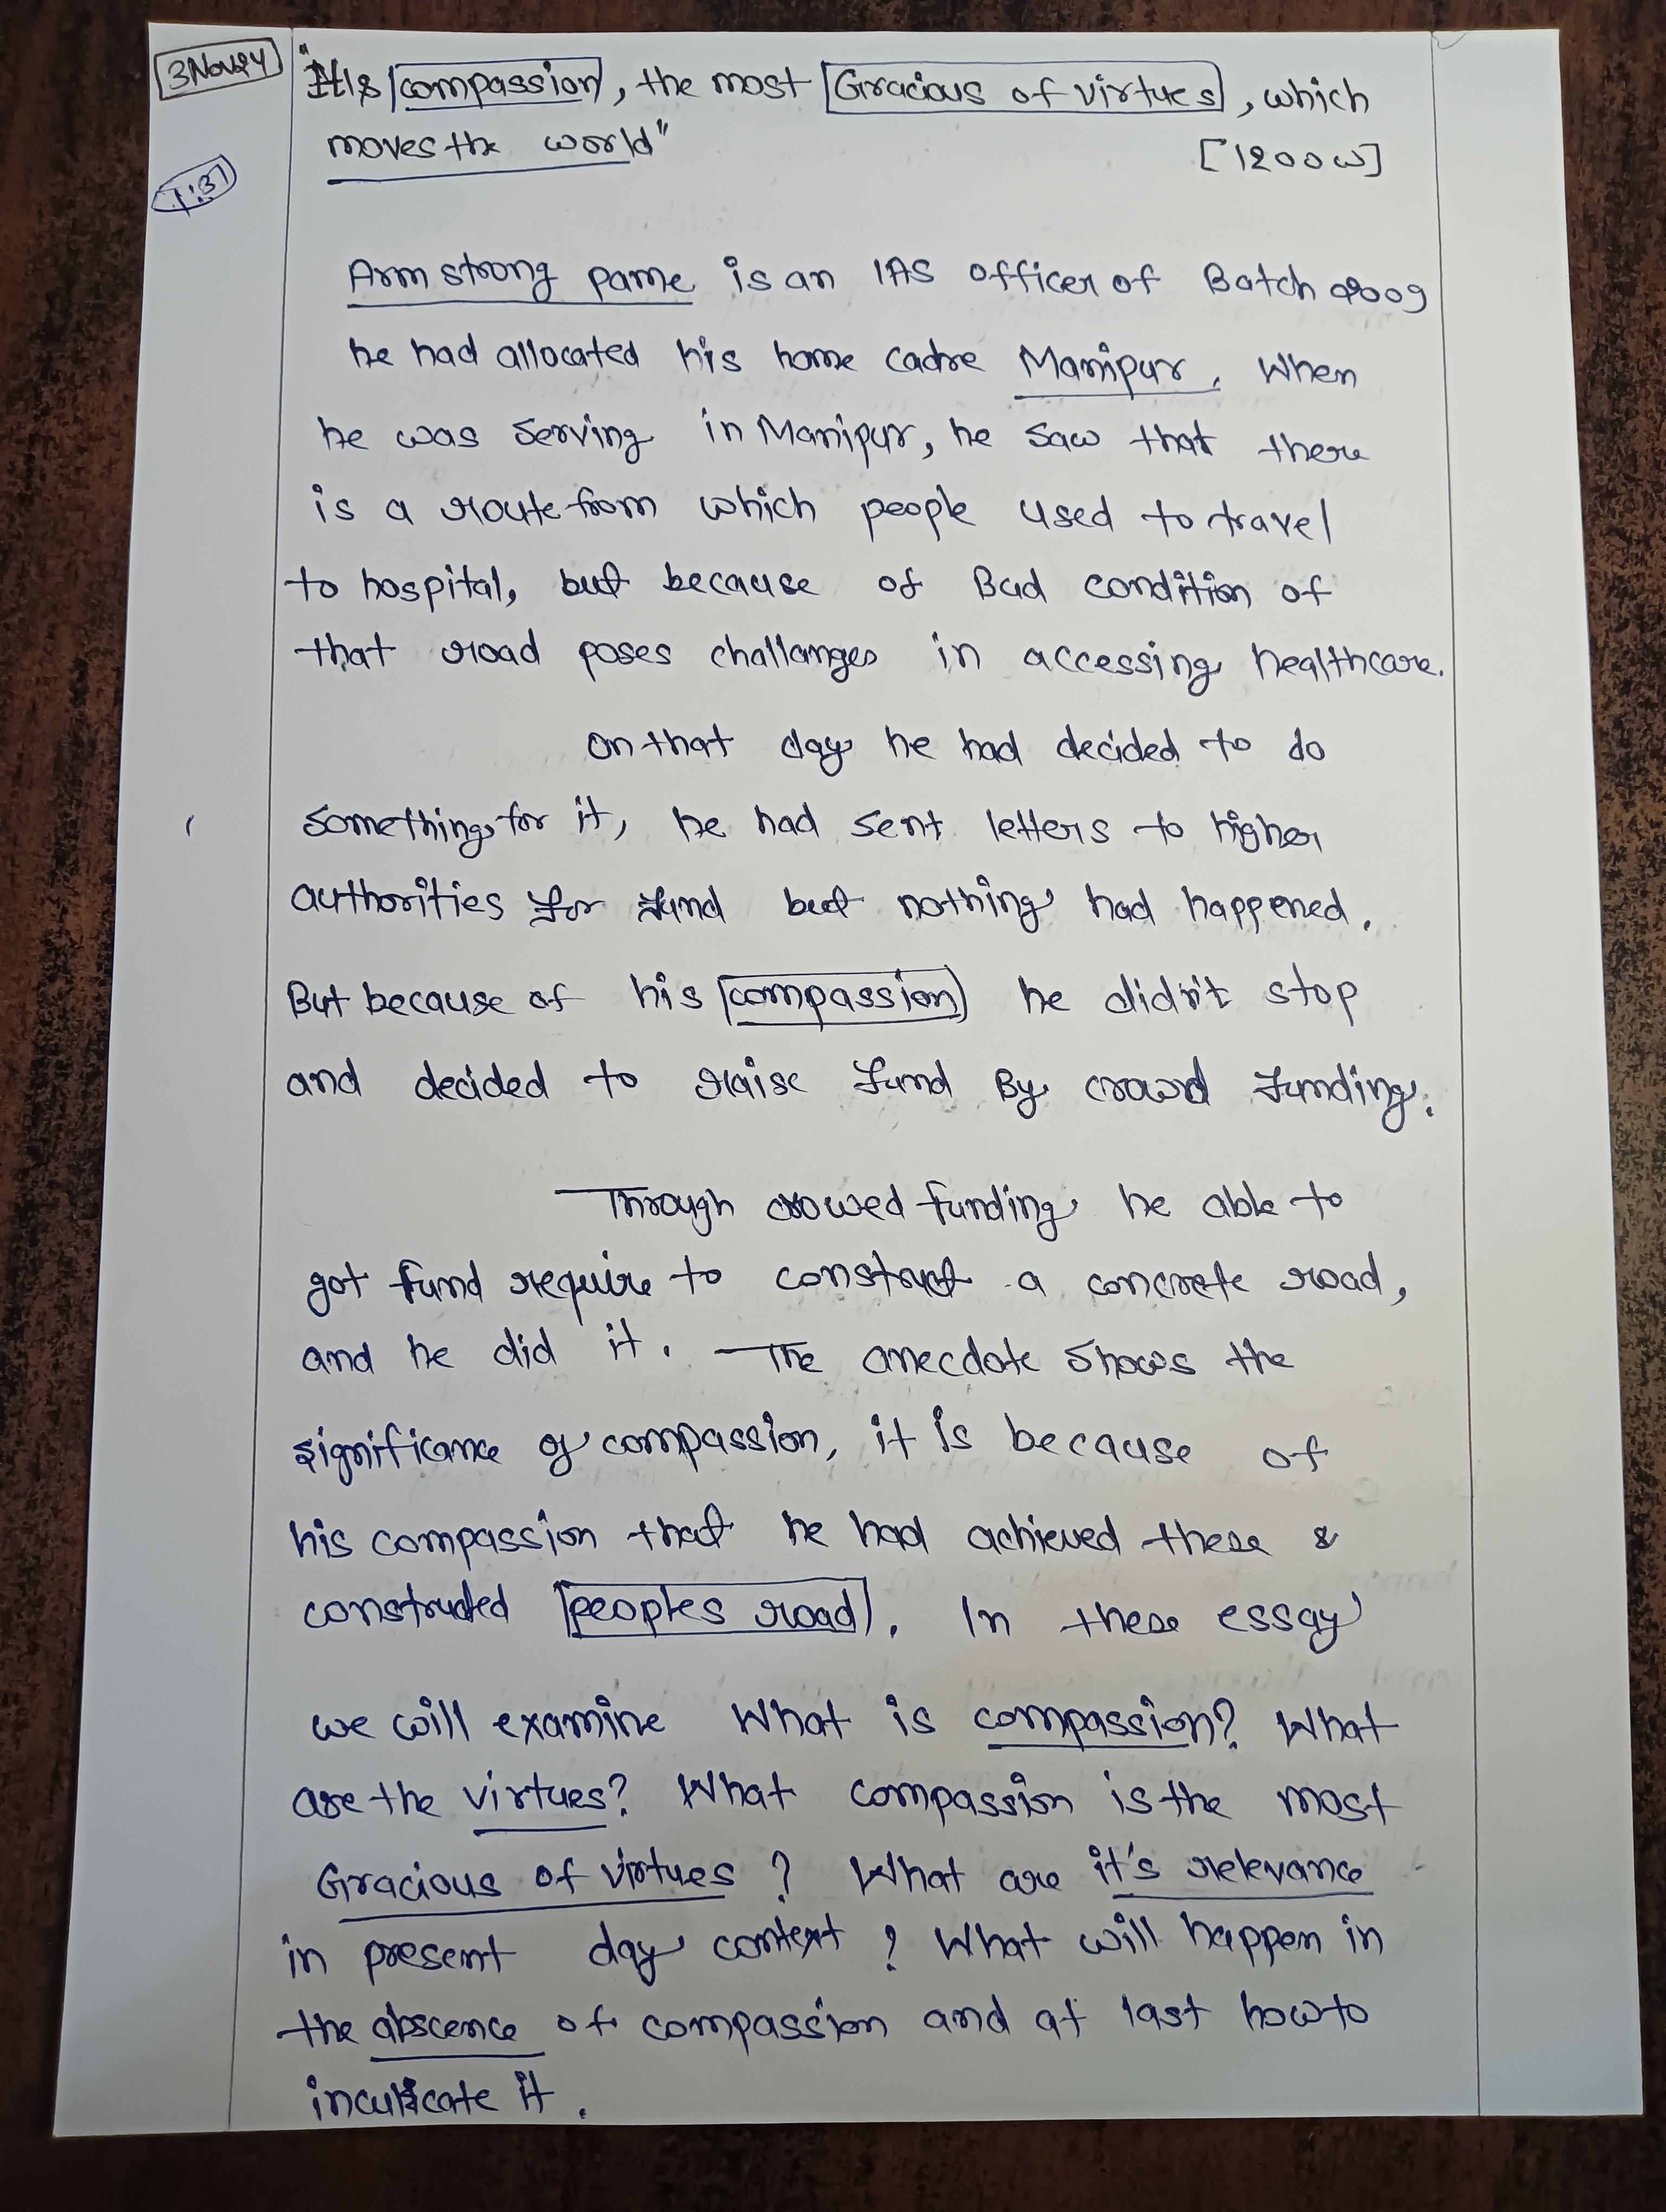 3Nov24
"It is compassion, the most Gracious of virtues, which
moves the world"
[1200w]
1:31
Armstrong pame is an IAS officer of Batch 2009
he had allocated his home cadre Manipur. When
he was serving in Manipur, he saw that there
is a route from which people used to travel
to hospital, but because of Bad condition of
that road poses challanges in accessing healthcare.
on that day he had decided to do
something for it, he had sent letters to higher
authorities for fund but nothing had happened.
But because of his compassion he didn't stop
and decided to raise fund By crowd funding.
Through crowed funding he able to
got fund require to construct a concrete road,
and he did it. The anecdote shows the
significance of compassion, it is because of
his compassion that he had achieved these &
constructed peoples road. In these essay
we will examine What is compassion? What
are the virtues? What compassion is the most
Gracious of virtues? What are it's relevance
in present day context? What will happen in
the abscence of compassion and at last how to
inculcate it.